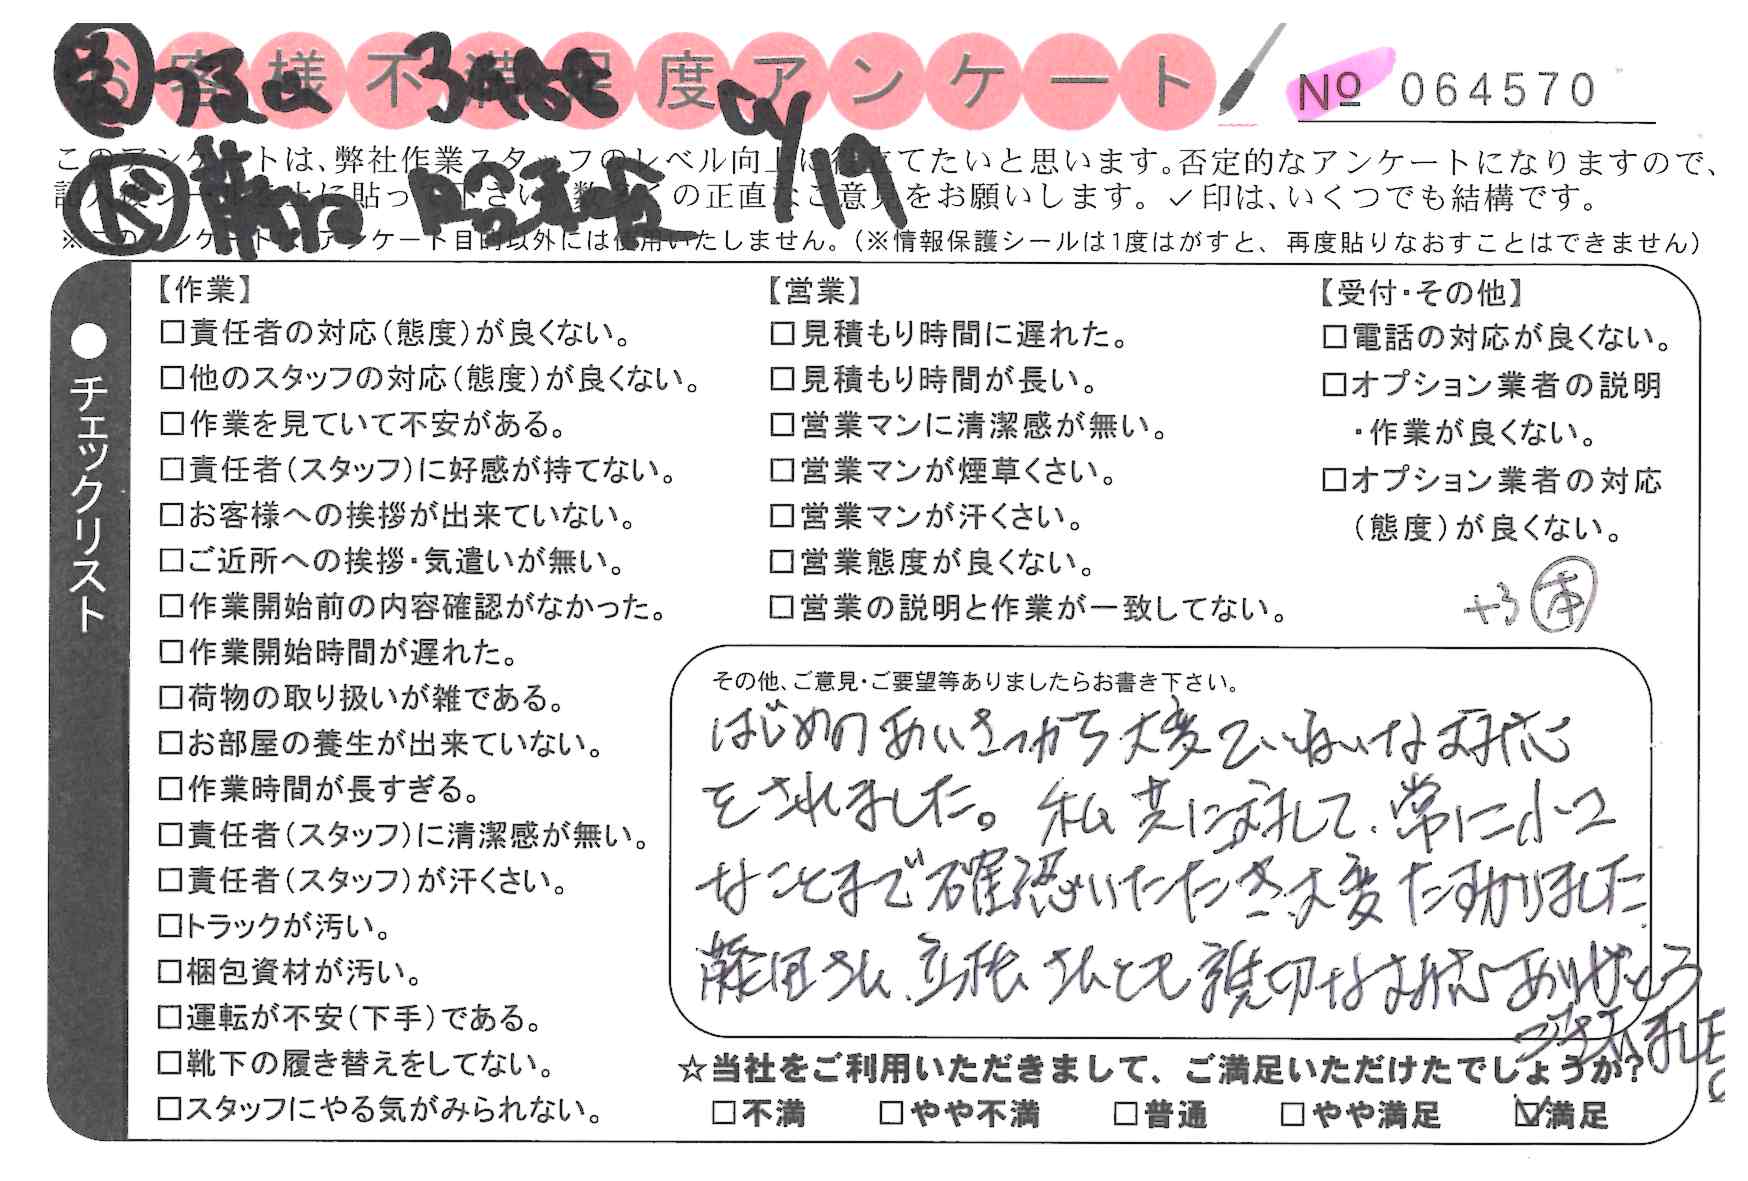 お客様不満足度アンケート
№ 064570
4/19
このアンケートは、弊社作業スタッフのレベル向上に役立てたいと思います。否定的なアンケートになりますので、
記入後シールを上に貼って下さい。数多くの正直なご意見をお願いします。✓印は、いくつでも結構です。
※このアンケートは、アンケート目的以外には使用いたしません。(※情報保護シールは1度はがすと、再度貼りなおすことはできません)
●チェックリスト
【作業】
□責任者の対応(態度)が良くない。
□他のスタッフの対応(態度)が良くない。
□作業を見ていて不安がある。
□責任者(スタッフ)に好感が持てない。
□お客様への挨拶が出来ていない。
□ご近所への挨拶・気遣いが無い。
□作業開始前の内容確認がなかった。
□作業開始時間が遅れた。
□荷物の取り扱いが雑である。
□お部屋の養生が出来ていない。
□作業時間が長すぎる。
□責任者(スタッフ)に清潔感が無い。
□責任者(スタッフ)が汗くさい。
□トラックが汚い。
□梱包資材が汚い。
□運転が不安(下手)である。
□靴下の履き替えをしてない。
□スタッフにやる気がみられない。
【営業】
□見積もり時間に遅れた。
□見積もり時間が長い。
□営業マンに清潔感が無い。
□営業マンが煙草くさい。
□営業マンが汗くさい。
□営業態度が良くない。
□営業の説明と作業が一致してない。
【受付・その他】
□電話の対応が良くない。
□オプション業者の説明
・作業が良くない。
□オプション業者の対応
(態度)が良くない。
+3 本
その他、ご意見・ご要望等ありましたらお書き下さい。
はじめのあいさつから大変ていねいな対応
をされました。私共に対して、常に小さ
なことまで確認いただき大変たすかりました
藤田さん、立花さんとも親切な対応ありがとう
ございました。
☆当社をご利用いただきまして、ご満足いただけたでしょうか?
□不満 □やや不満 □普通 □やや満足 ☑満足